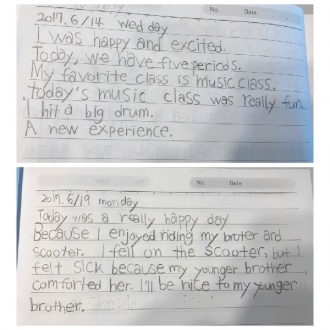 No. Date
2017. 6/14 wed day
I was happy and excited.
Today, we have five periods.
My favorite class is music class.
Today's music class was really fun.
I hit a big drum.
A new experience.
No. Date
2017. 6/19 monday
Today was a really happy day
Because I enjoyed riding my
scooter. I fell on the scooter, but I
felt sick because my younger brother
comforted her. I'll be nice to my younger
brother.